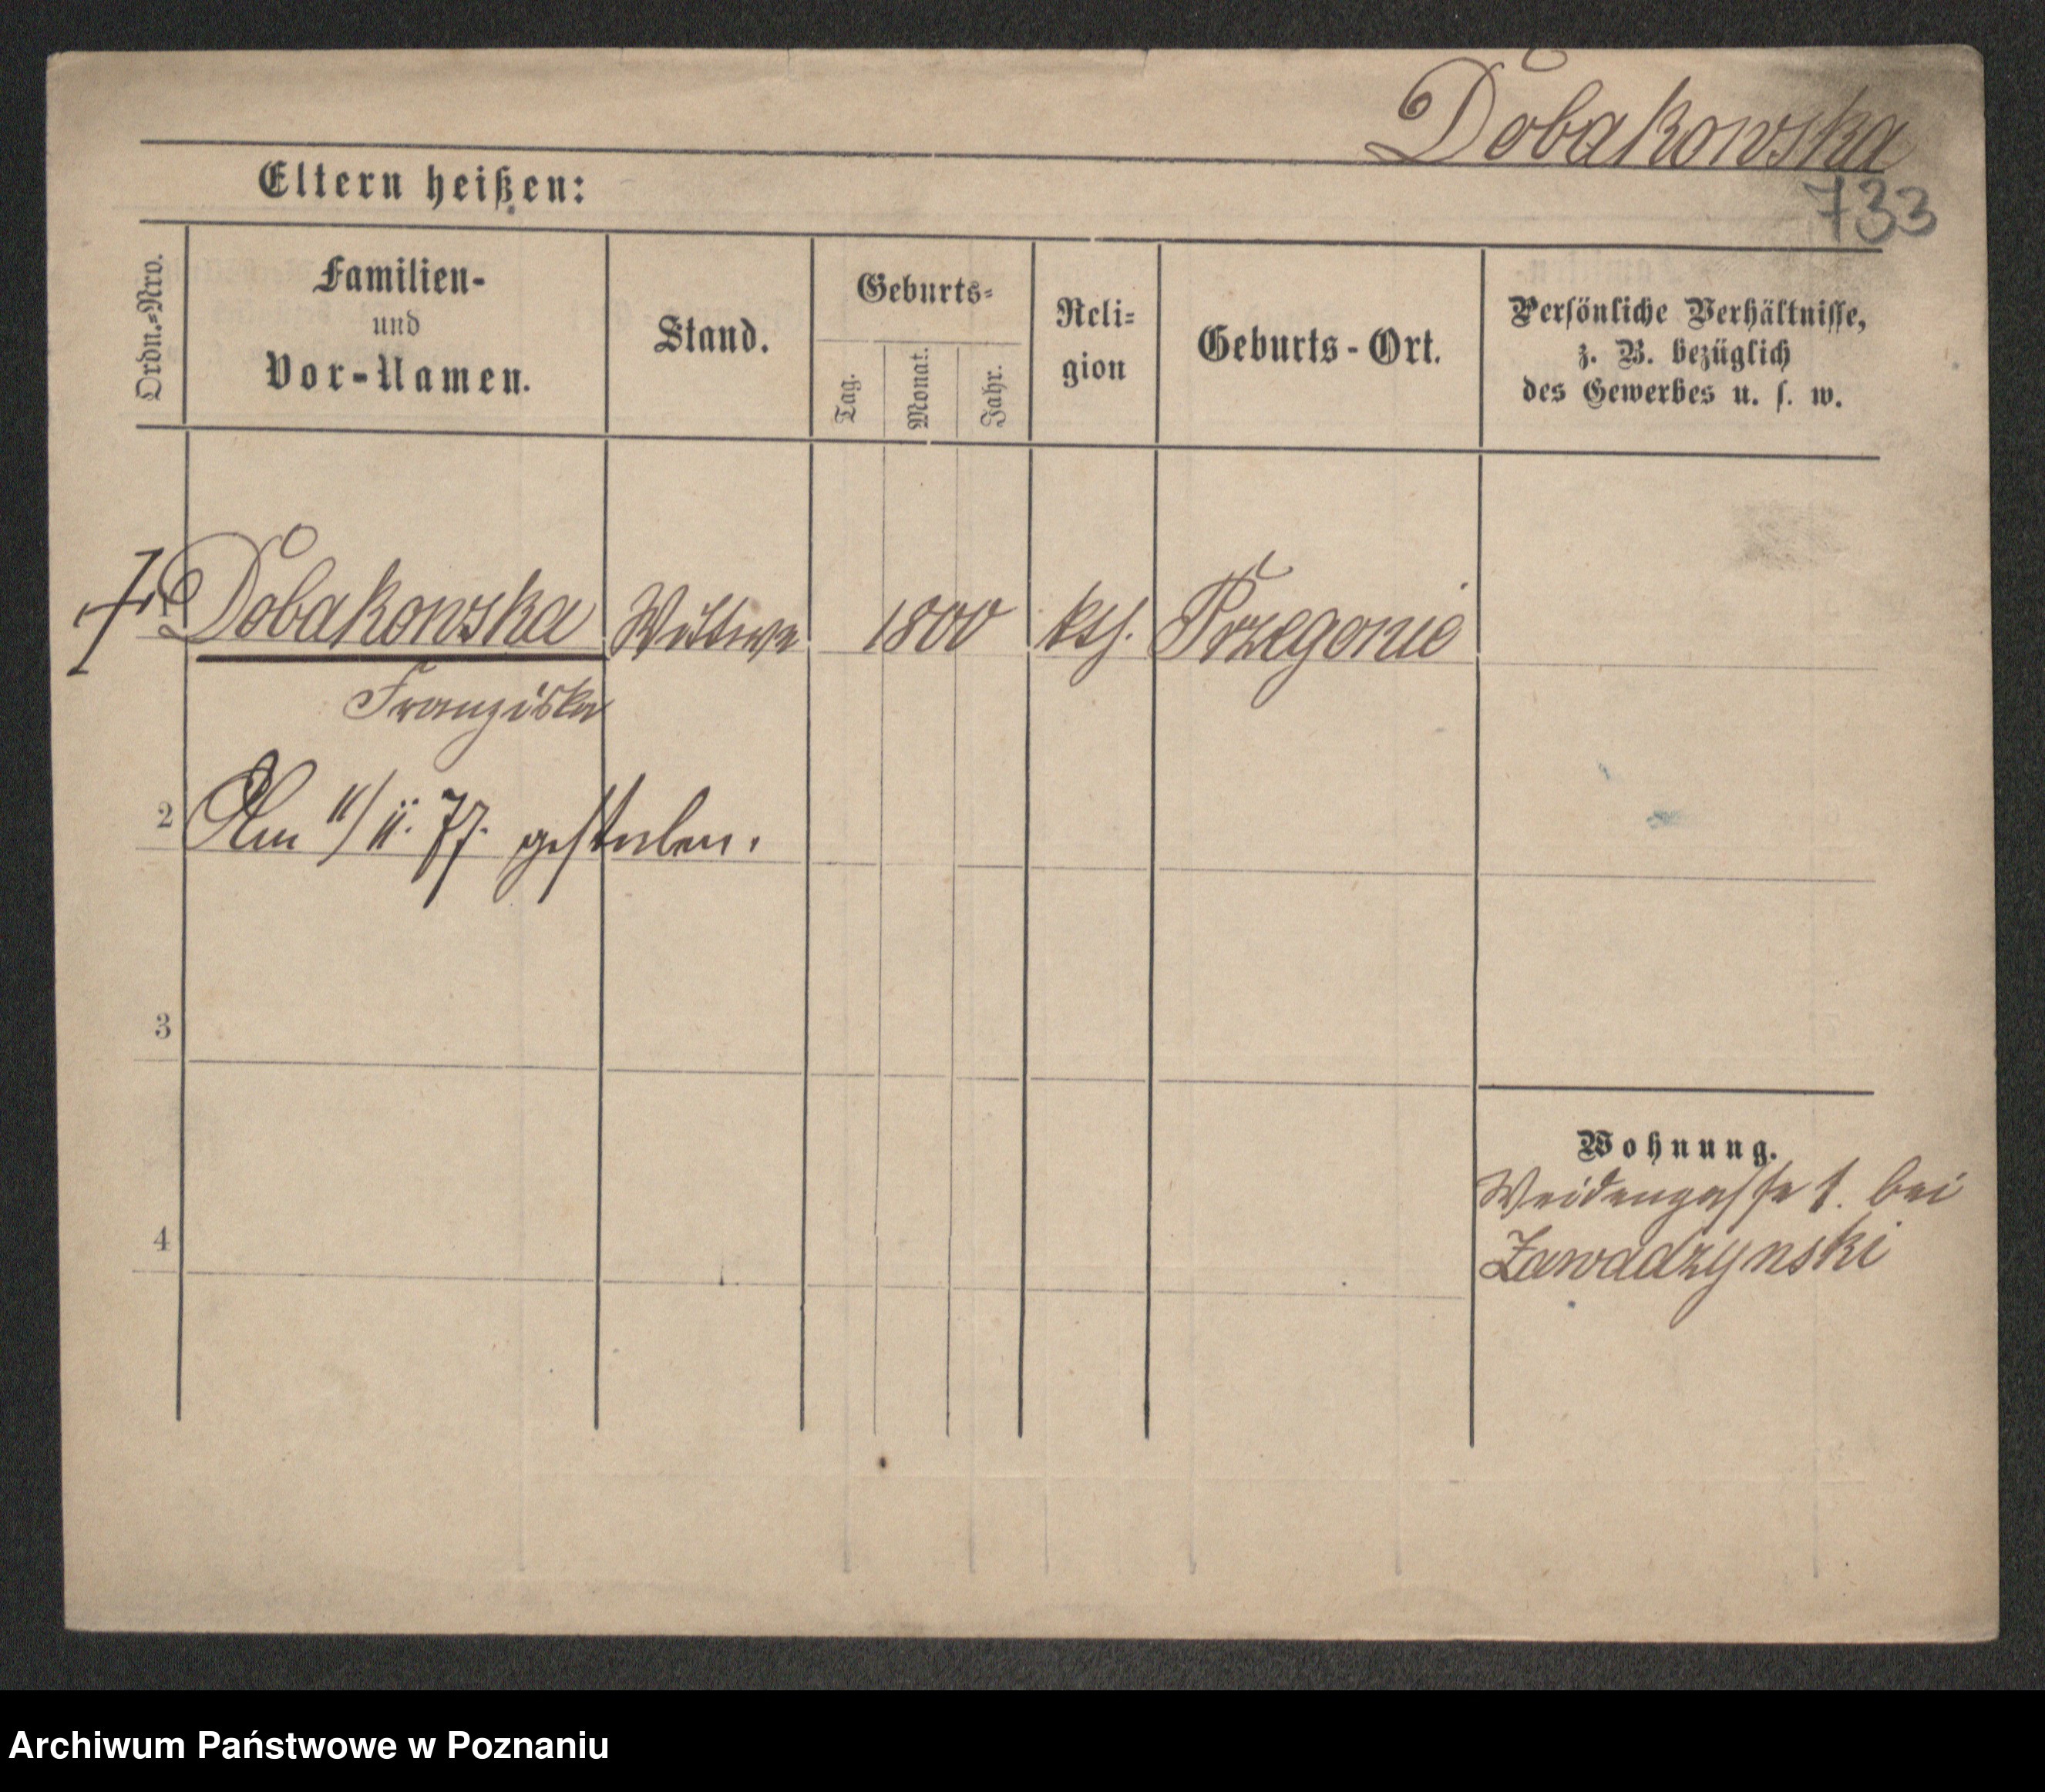 Dobakowska
Eltern heißen:
733
Ordn.=Nro.
Familien-
und
Vor-Namen.
Stand.
Geburts=
Tag.
Monat.
Jahr.
Reli=
gion
Geburts-Ort.
Persönliche Verhältnisse,
z. B. bezüglich
des Gewerbes u. s. w.
1 Dobakowska Wittwe 1800 kth. Przegonie
Franziska
2 Am 11/11. 77. gestorben.
3
Wohnung.
Weidengasse 1. bei
4
Zawadzynski
Archiwum Państwowe w Poznaniu